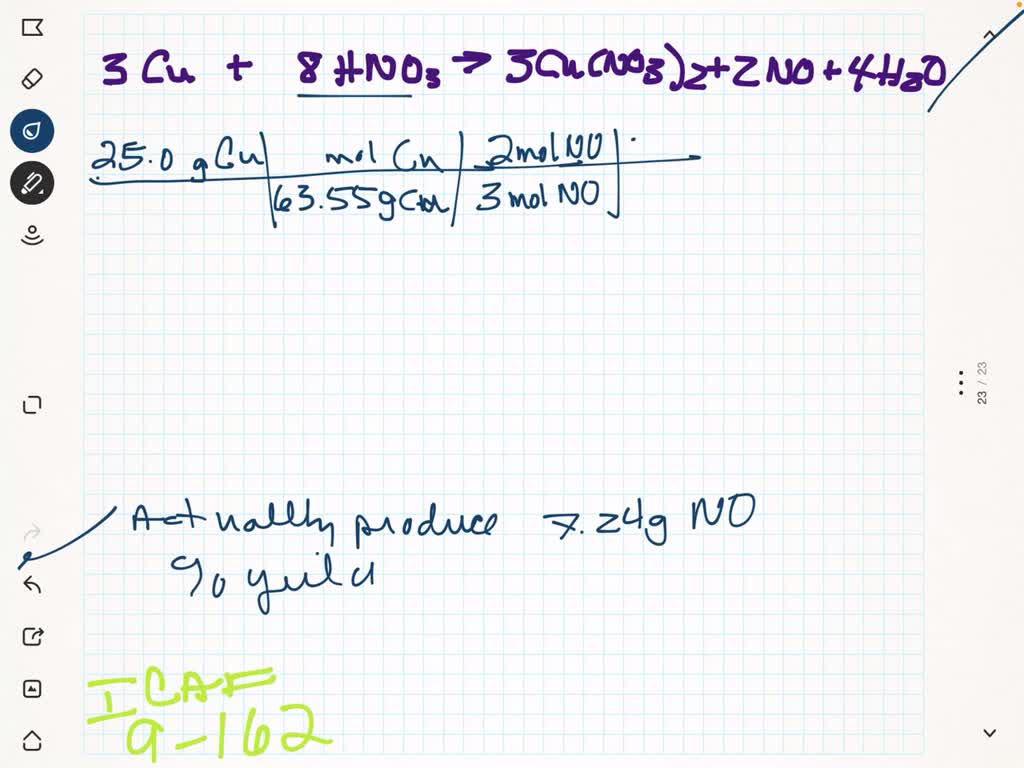 3Cu + 8HNO3 → 3Cu(NO3)2 + 2NO + 4H2O
25.0 g Cu | mol Cu | 2mol NO
63.55g Cu | 3 mol NO
Actually produce 7.24g NO
% yield
ICAF
9-162
23 / 23